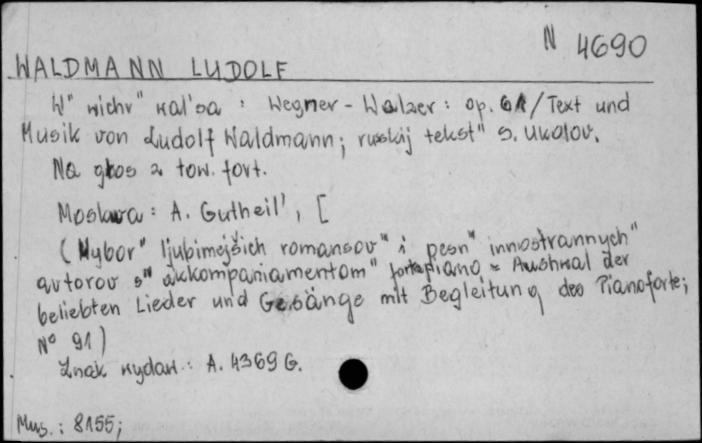 N 4690
WALDMANN LUDOLF
W" wichr" val'sa : Wegner - Walzer : op. 61 / Text und
Musik von Ludolf Waldmann; russkij tekst" S. Ukolov.
Na głos z tow. fort.
Moskwa : A. Gutheil', [
(Wybor" ljubimejšich romansov" i pesn" innostrannych"
avtorov s" akkompaniamentom" fortepiano = Auswahl der
beliebten Lieder und Gesänge mit Begleitung des Pianoforte;
Nº 91)
Znak wydaw.: A. 4369 G.
Mus.: 8155;